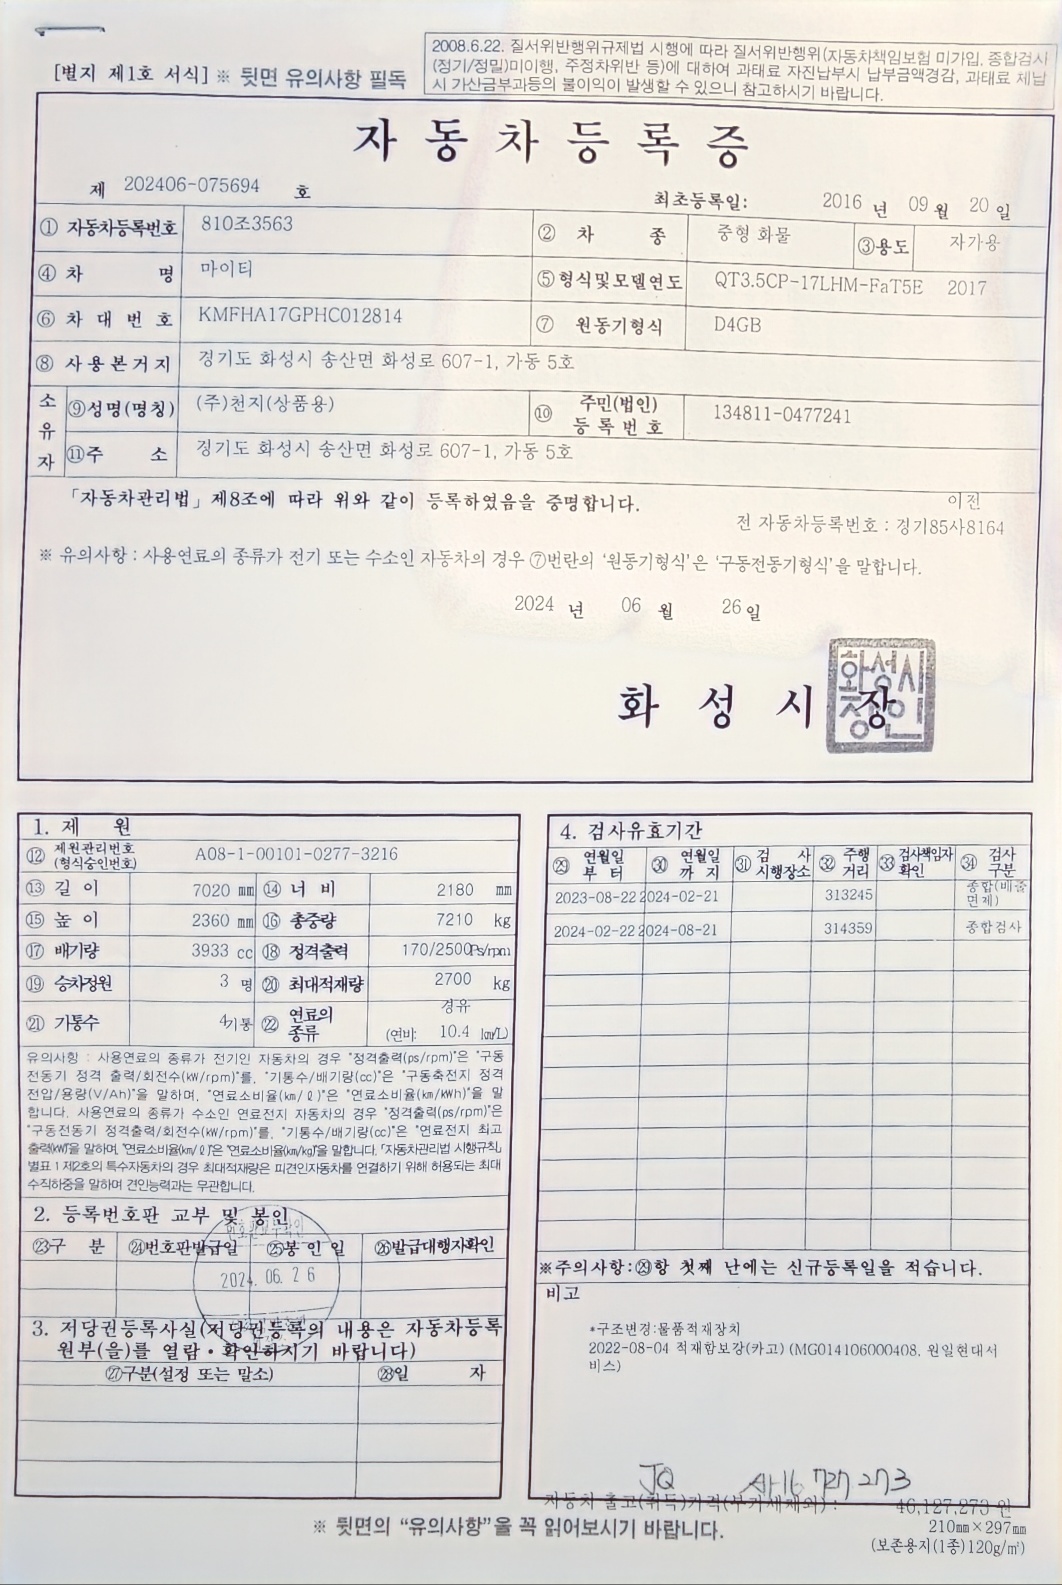 [별지 제1호 서식] ※ 뒷면 유의사항 필독
2008.6.22. 질서위반행위규제법 시행에 따라 질서위반행위(자동차책임보험 미가입, 종합검사
(정기/정밀)미이행, 주정차위반 등)에 대하여 과태료 자진납부시 납부금액경감, 과태료 체납
시 가산금부과등의 불이익이 발생할 수 있으니 참고하시기 바랍니다.
자동차등록증
제 202406-075694 호
최초등록일: 2016 년 09 월 20 일
① 자동차등록번호 810조3563 ② 차 종 중형 화물 ③용도 자가용
④ 차 명 마이티 ⑤ 형식및모델연도 QT3.5CP-17LHM-FaT5E 2017
⑥ 차 대 번 호 KMFHA17GPHC012814 ⑦ 원동기형식 D4GB
⑧ 사용본거지 경기도 화성시 송산면 화성로 607-1, 가동 5호
소유자 ⑨성명(명칭) (주)천지(상품용) ⑩ 주민(법인) 등록번호 134811-0477241
⑪주 소 경기도 화성시 송산면 화성로 607-1, 가동 5호
「자동차관리법」제8조에 따라 위와 같이 등록하였음을 증명합니다.
이전
전 자동차등록번호 : 경기85사8164
※ 유의사항 : 사용연료의 종류가 전기 또는 수소인 자동차의 경우 ⑦번란의 '원동기형식'은 '구동전동기형식'을 말합니다.
2024 년 06 월 26 일
화 성 시 장
화성시
장인
1. 제 원
⑫ 제원관리번호 (형식승인번호) A08-1-00101-0277-3216
⑬ 길 이 7020 mm ⑭ 너 비 2180 mm
⑮ 높 이 2360 mm ⑯ 총중량 7210 kg
⑰ 배기량 3933 cc ⑱ 정격출력 170/2500Ps/rpm
⑲ 승차정원 3 명 ⑳ 최대적재량 2700 kg
㉑ 기통수 4기통 ㉒ 연료의 종류 경유 (연비: 10.4 km/L)
유의사항 : 사용연료의 종류가 전기인 자동차의 경우 "정격출력(ps/rpm)"은 "구동
전동기 정격 출력/회전수(kW/rpm)"를, "기통수/배기량(cc)"은 "구동축전지 정격
전압/용량(V/Ah)"을 말하며, "연료소비율(km/ℓ)"은 "연료소비율(km/kWh)"을 말
합니다. 사용연료의 종류가 수소인 연료전지 자동차의 경우 "정격출력(ps/rpm)"은
"구동전동기 정격출력/회전수(kW/rpm)"를, "기통수/배기량(cc)"은 "연료전지 최고
출력(kW)"을 말하며, "연료소비율(km/ℓ)"은 "연료소비율(km/kg)"을 말합니다. 「자동차관리법 시행규칙」
별표 1 제2호의 특수자동차의 경우 최대적재량은 피견인자동차를 연결하기 위해 허용되는 최대
수직하중을 말하며 견인능력과는 무관합니다.
2. 등록번호판 교부 및 봉인
㉓구 분 ㉔번호판발급일 ㉕봉 인 일 ㉖발급대행자확인
2024. 06. 26
3. 저당권등록사실(저당권등록의 내용은 자동차등록
원부(을)를 열람・확인하시기 바랍니다)
㉗구분(설정 또는 말소) ㉘일 자
4. 검사유효기간
㉙ 연월일 부터 ㉚ 연월일 까지 ㉛ 검사 시행장소 ㉜ 주행 거리 ㉝ 검사책임자 확인 ㉞ 검사 구분
2023-08-22 2024-02-21 313245 종합(배출면제)
2024-02-22 2024-08-21 314359 종합검사
※주의사항:㉙항 첫째 난에는 신규등록일을 적습니다.
비고
*구조변경:물품적재장치
2022-08-04 적재함보강(카고) (MG014106000408, 원일현대서
비스)
JQ
자동차 출고(취득)가격(부가세제외) : 46,127,273 원
※ 뒷면의 "유의사항"을 꼭 읽어보시기 바랍니다.
210mm×297mm
(보존용지(1종)120g/㎡)